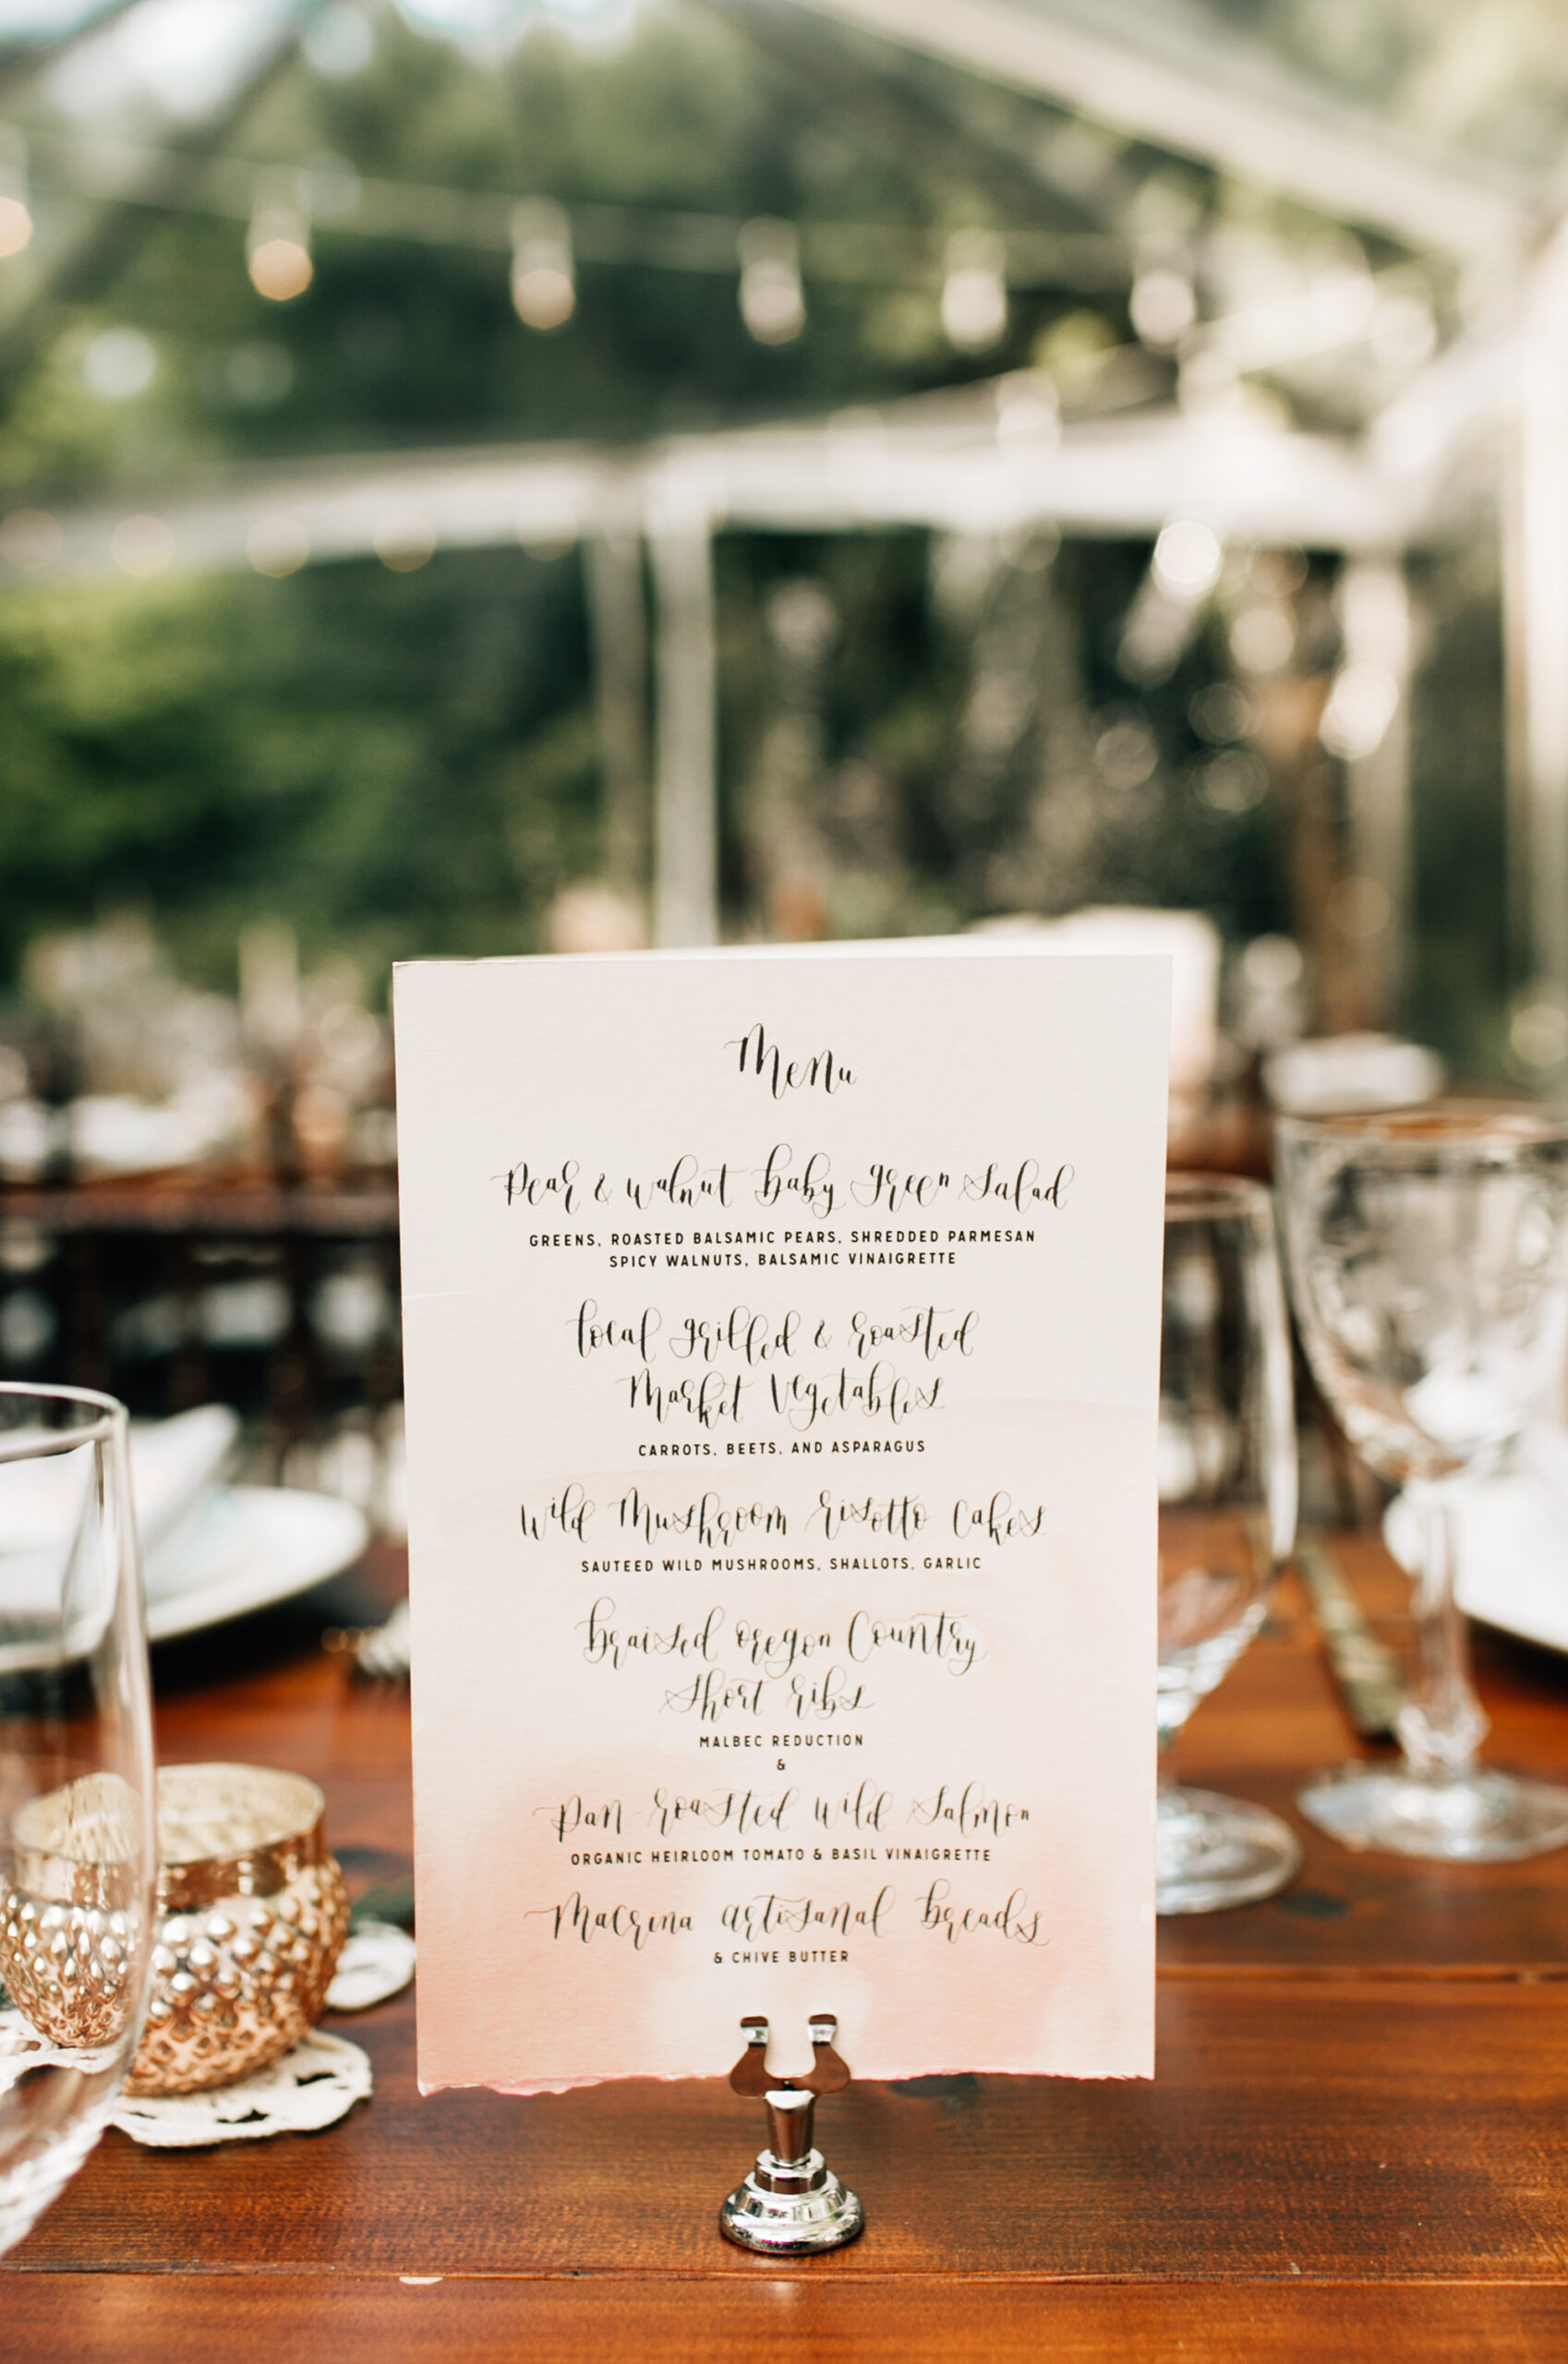 Menu
Pear & Walnut Baby Green Salad
GREENS, ROASTED BALSAMIC PEARS, SHREDDED PARMESAN
SPICY WALNUTS, BALSAMIC VINAIGRETTE
Local Grilled & Roasted
Market Vegetables
CARROTS, BEETS, AND ASPARAGUS
Wild Mushroom Risotto Cakes
SAUTEED WILD MUSHROOMS, SHALLOTS, GARLIC
Braised Oregon Country
Short Ribs
MALBEC REDUCTION
&
Pan Roasted Wild Salmon
ORGANIC HEIRLOOM TOMATO & BASIL VINAIGRETTE
Macrina Artisanal Breads
& CHIVE BUTTER